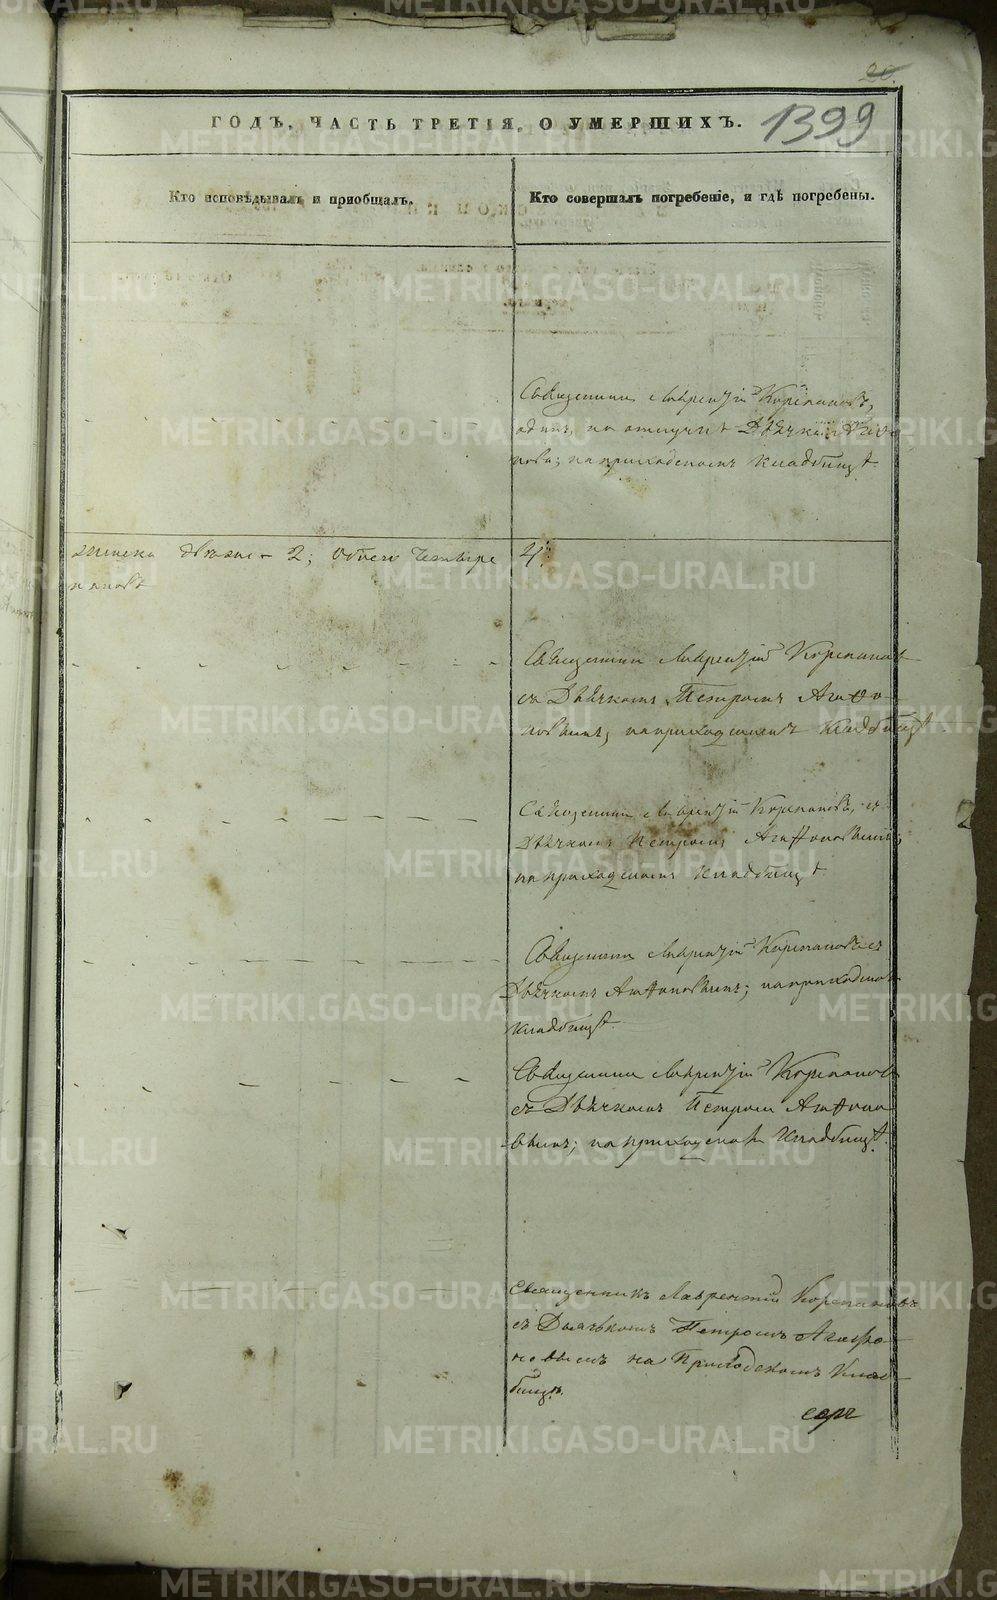 20.
1399
ГОДЪ, ЧАСТЬ ТРЕТІЯ, О УМЕРШИХЪ.
Кто исповѣдывалъ и пріобщалъ.
Кто совершалъ погребеніе, и гдѣ погребены.
Священникъ Лаврентій Корепановъ,
одинъ, по отлучкѣ Дьячка Агаѳо
нова; на приходскомъ кладбищѣ
женска двѣ — 2; обоего четыре 4.
Священникъ Лаврентій Корепановъ
съ Дьячкомъ Петромъ Агаѳо-
новымъ, на приходскомъ кладбищѣ
Священникъ Лаврентій Корепановъ, съ
Дьячкомъ Петромъ Агаѳоновымъ;
на приходскомъ кладбищѣ
Священникъ Лаврентій Корепановъ съ
Дьячкомъ Агаѳоновымъ; на приходском
кладбищѣ
Священникъ Лаврентій Корепановъ
съ Дьячкомъ Петромъ Агаѳоно
вымъ; на приходскомъ кладбищѣ.
Священникъ Лаврентій Корепановъ
съ Дьячькомъ Петромъ Агафо-
новымъ на Приходскомъ Клад
бищѣ.
METRIKI.GASO-URAL.RU